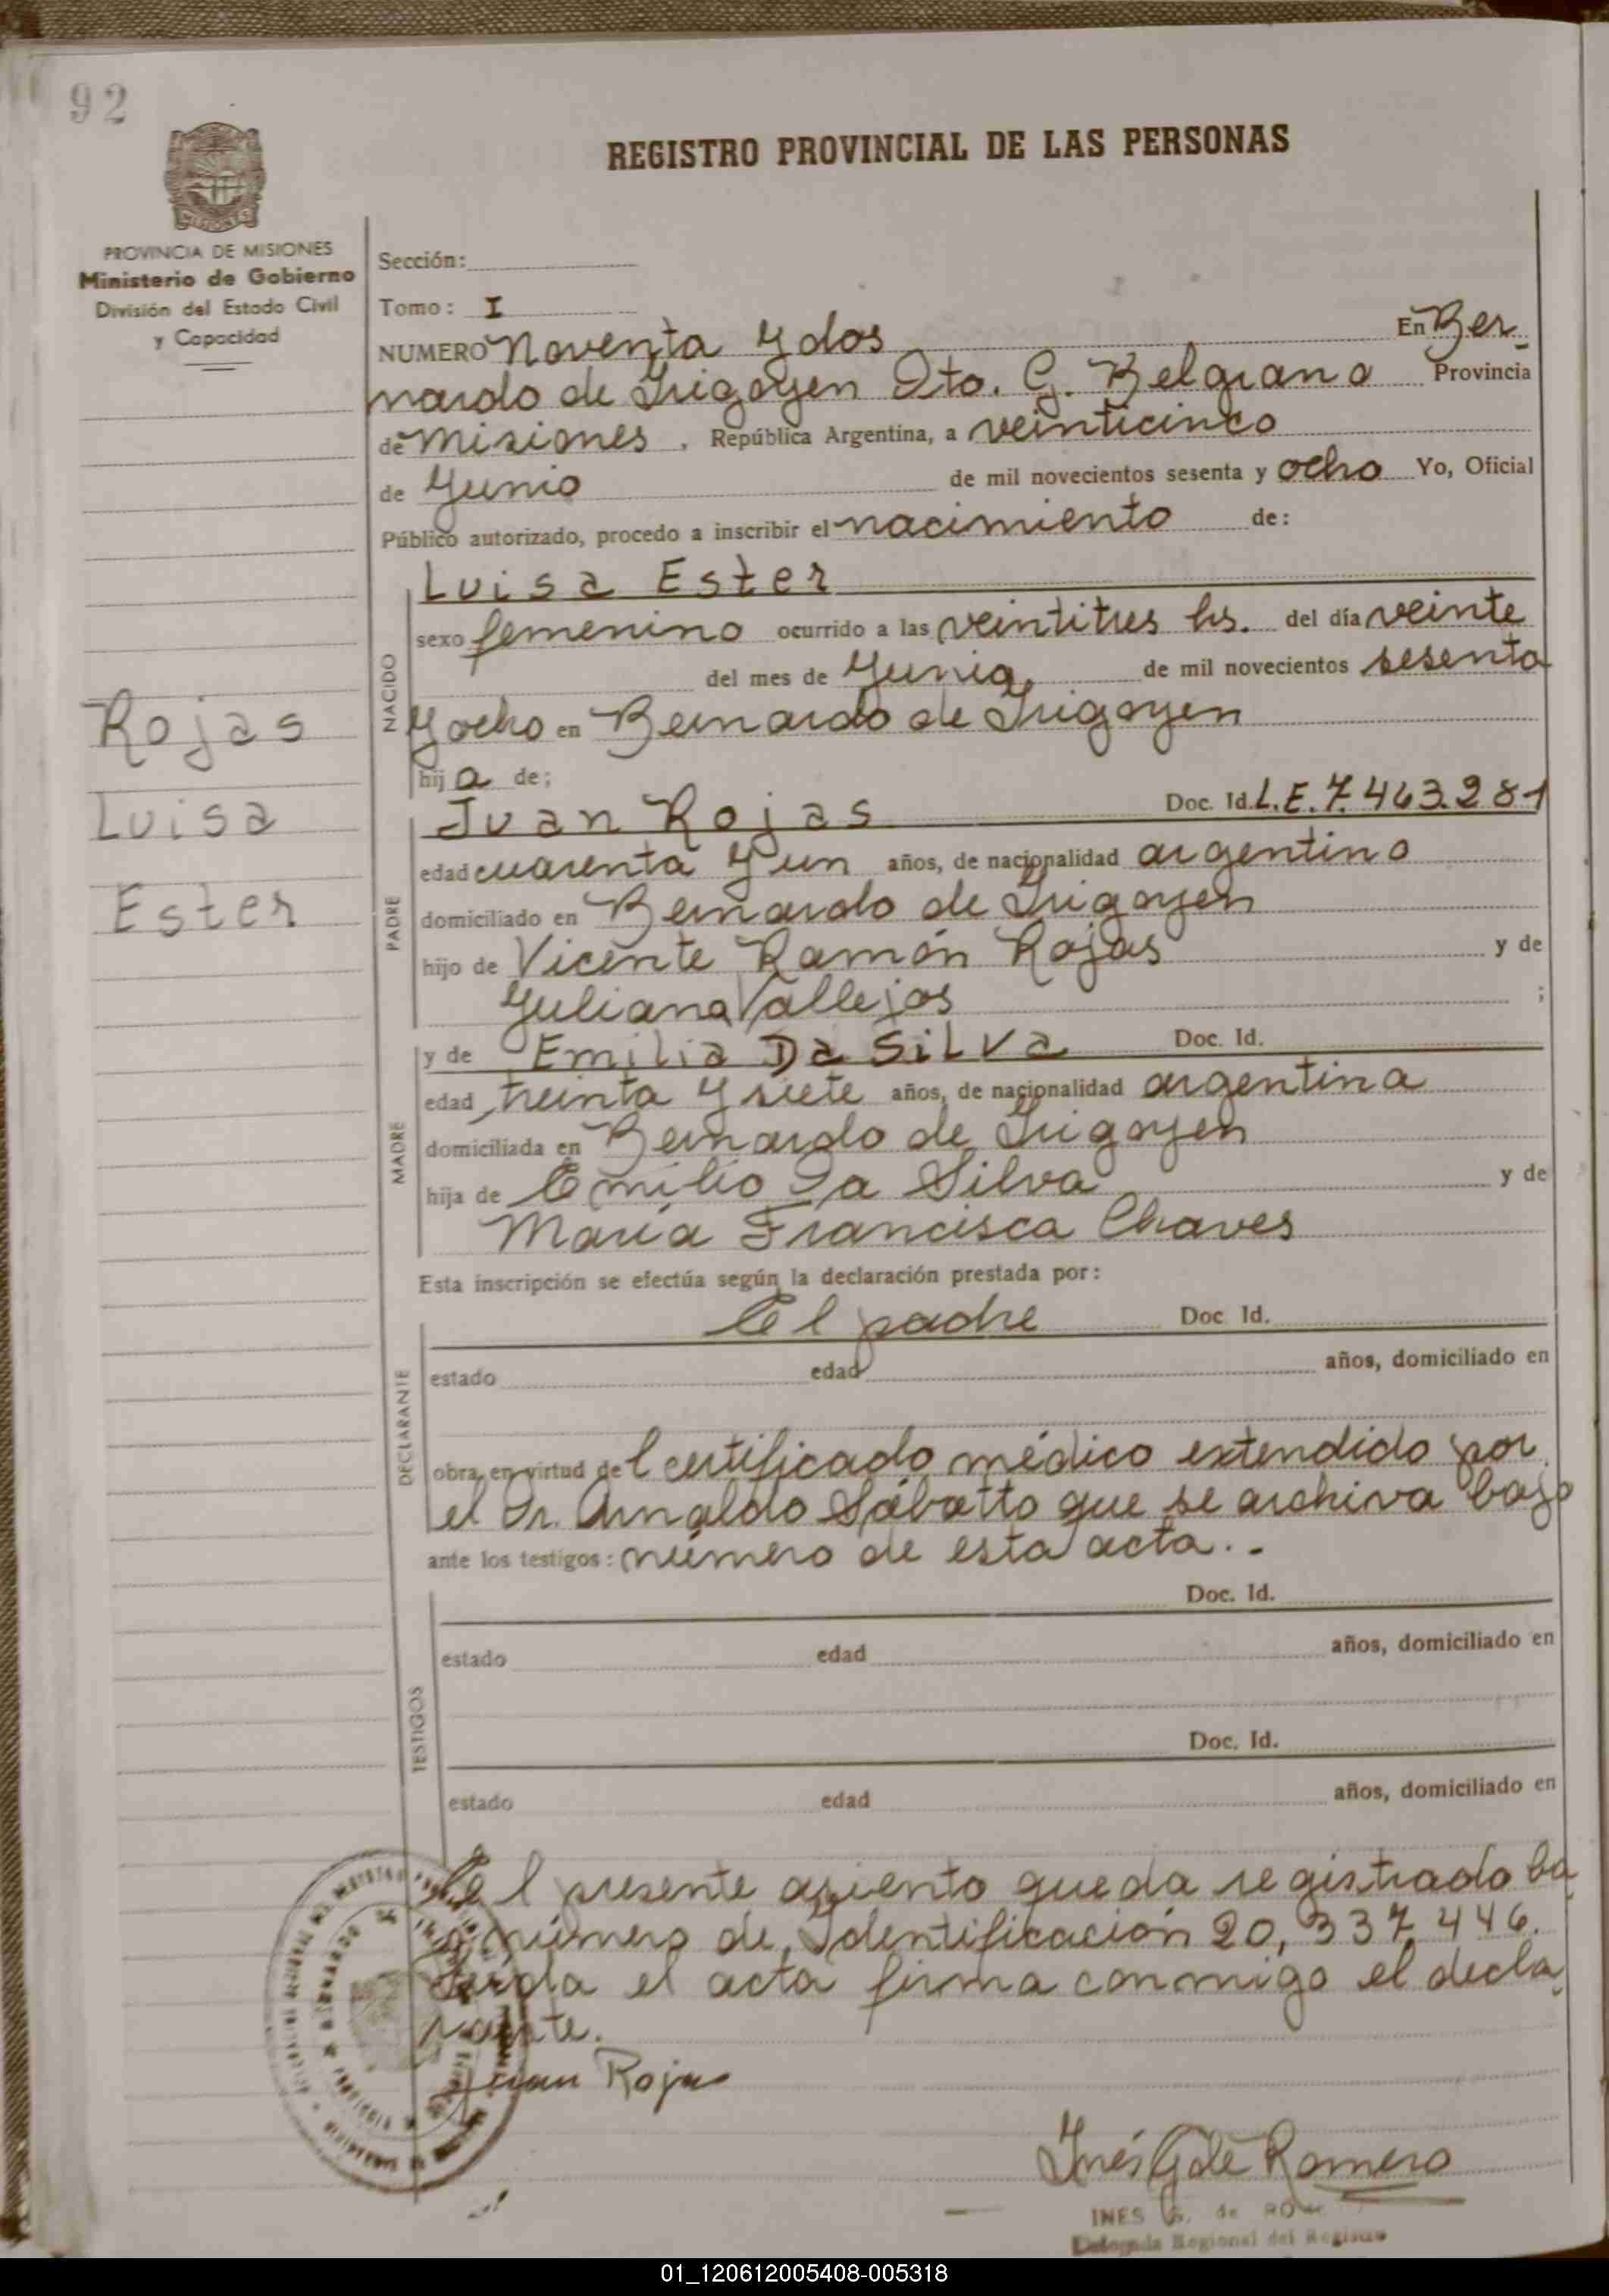 92
REGISTRO PROVINCIAL DE LAS PERSONAS
MISIONES
PROVINCIA DE MISIONES
Ministerio de Gobierno
División del Estado Civil
y Capacidad
Rojas
Luisa
Ester
Sección:
Tomo: I
NUMERO Noventa y dos En Ber_
nardo de Irigoyen Dto. G. Belgrano Provincia
de Misiones, República Argentina, a veinticinco
de Junio de mil novecientos sesenta y ocho Yo, Oficial
Público autorizado, procedo a inscribir el nacimiento de:
NACIDO
Luisa Ester
sexo femenino ocurrido a las veintitres hs. del día veinte
del mes de Junio, de mil novecientos sesenta
y ocho en Bernardo de Irigoyen
hija de;
PADRE
Juan Rojas Doc. Id. L.E. 7.463.281
edad cuarenta y un años, de nacionalidad argentino
domiciliado en Bernardo de Irigoyen
hijo de Vicente Ramón Rojas y de
Juliana Vallejos ;
MADRE
y de Emilia Da Silva Doc. Id.
edad treinta y siete años, de nacionalidad argentina
domiciliada en Bernardo de Irigoyen
hija de Emilio Da Silva y de
María Francisca Chaves
Esta inscripción se efectúa según la declaración prestada por:
DECLARANTE
El padre Doc. Id.
estado edad años, domiciliado en
obra en virtud del certificado médico extendido por
el Dr. Arnaldo Sábatto que se archiva bajo
ante los testigos: número de esta acta.-
TESTIGOS
Doc. Id.
estado edad años, domiciliado en
Doc. Id.
estado edad años, domiciliado en
El presente asiento queda registrado ba_
jo número de Identificación 20,337.446.
Leída el acta firma conmigo el decla_
rante.
Juan Rojas
Inés G de Romero
INES G. de
Delegada Regional del Registro
01_120612005408-005318